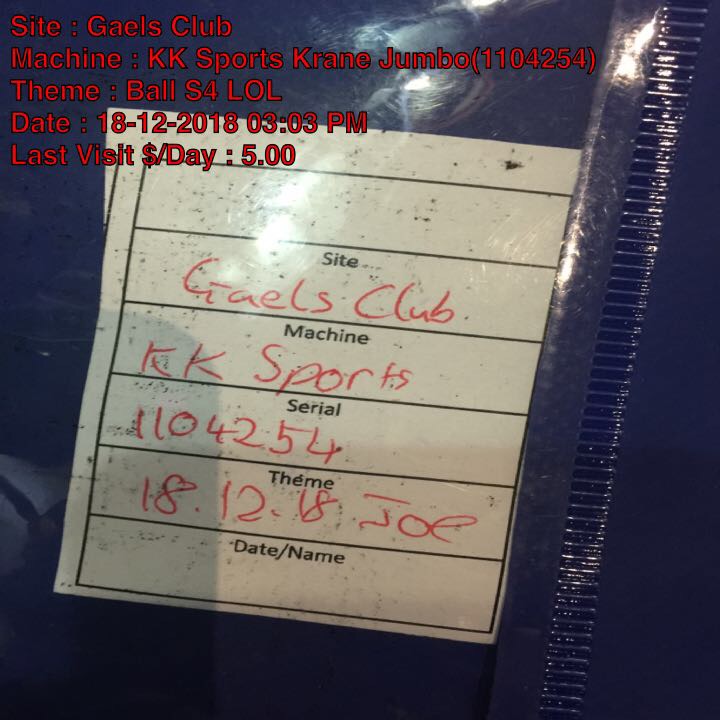 Site : Gaels Club
Machine : KK Sports Krane Jumbo(1104254)
Theme : Ball S4 LOL
Date : 18-12-2018 03:03 PM
Last Visit $/Day : 5.00
Site
Gaels Club
Machine
KK Sports
Serial
1104254
Theme
18.12.18 Joe
Date/Name